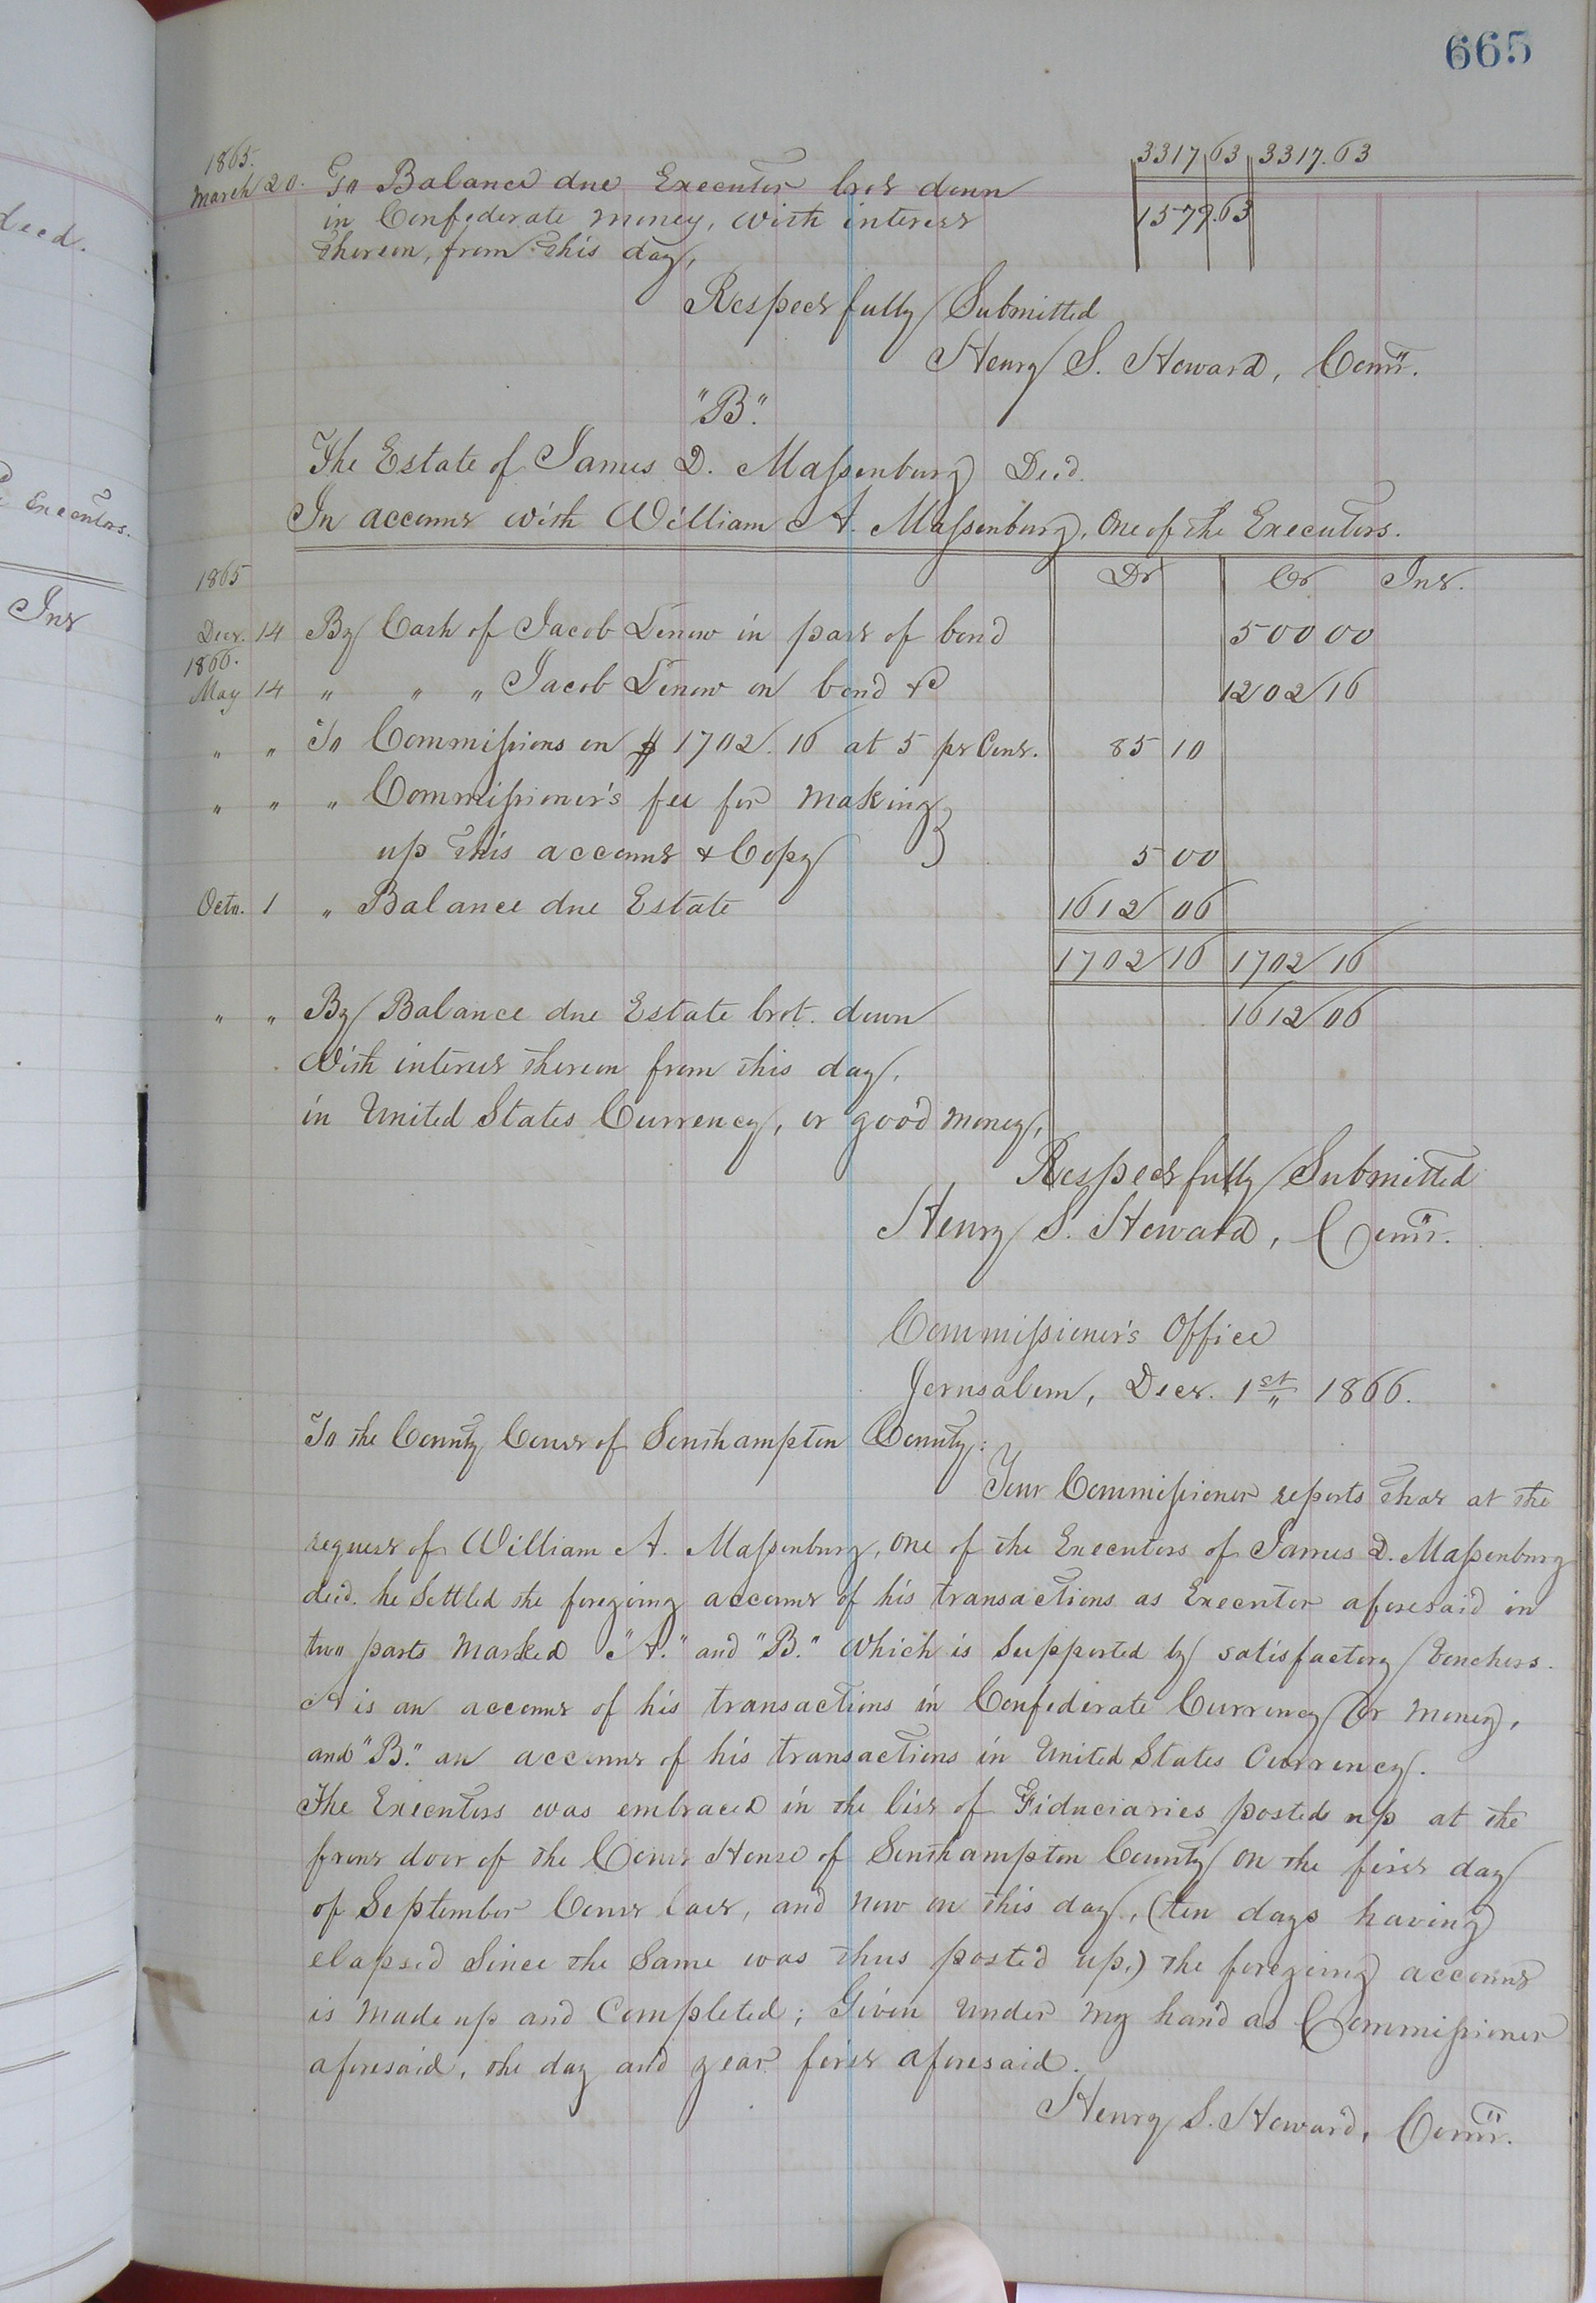 665
deed.
Executors.
Int
3317 63 3317.63
1865.
March 20. To Balance due Executor brot down
in Confederate money, with interest 1579.63
thereon, from this day,
Respectfully Submitted
Henry S. Howard, Comr.
"B."
The Estate of James D. Massenburg Decd.
In account with William A. Massenburg, One of the Executors.
1865 Dr Cr Int.
Decr. 14 By Cash of Jacob Denow in part of bond 500 00
1866.
May 14 " " " Jacob Denow on bond &c 1202 16
" " To Commissions on $1702.16 at 5 pr Cent. 85 10
" " " Commissioner's fee for making
up this account & Copy 5 00
Octo. 1 " Balance due Estate 1612 06
1702 16 1702 16
" " By Balance due Estate brot. down 1612 06
With interest thereon from this day,
in United States Currency, or good money,
Respectfully Submitted
Henry S. Howard, Comr.
Commissioner's Office
Jerusalem, Decr. 1st 1866.
To the County Court of Southampton County:
Your Commissioner reports that at the
request of William A. Massenburg, One of the Executors of James D. Massenburg
decd. he Settled the foregoing account of his transactions as Executor aforesaid in
two parts Marked "A." and "B." Which is Supported by satisfactory Vouchers.
A is an account of his transactions in Confederate Currency or Money,
and "B." an account of his transactions in United States Currency.
The Executors was embraced in the list of Fiduciaries posted up at the
front door of the Court House of Southampton County on the first day
of September Court last, and now on this day, (ten days having
elapsed Since the Same was thus posted up,) the foregoing account
is Made up and Completed; Given under my hand as Commissioner
aforesaid, the day and year first aforesaid.
Henry S. Howard, Comr.